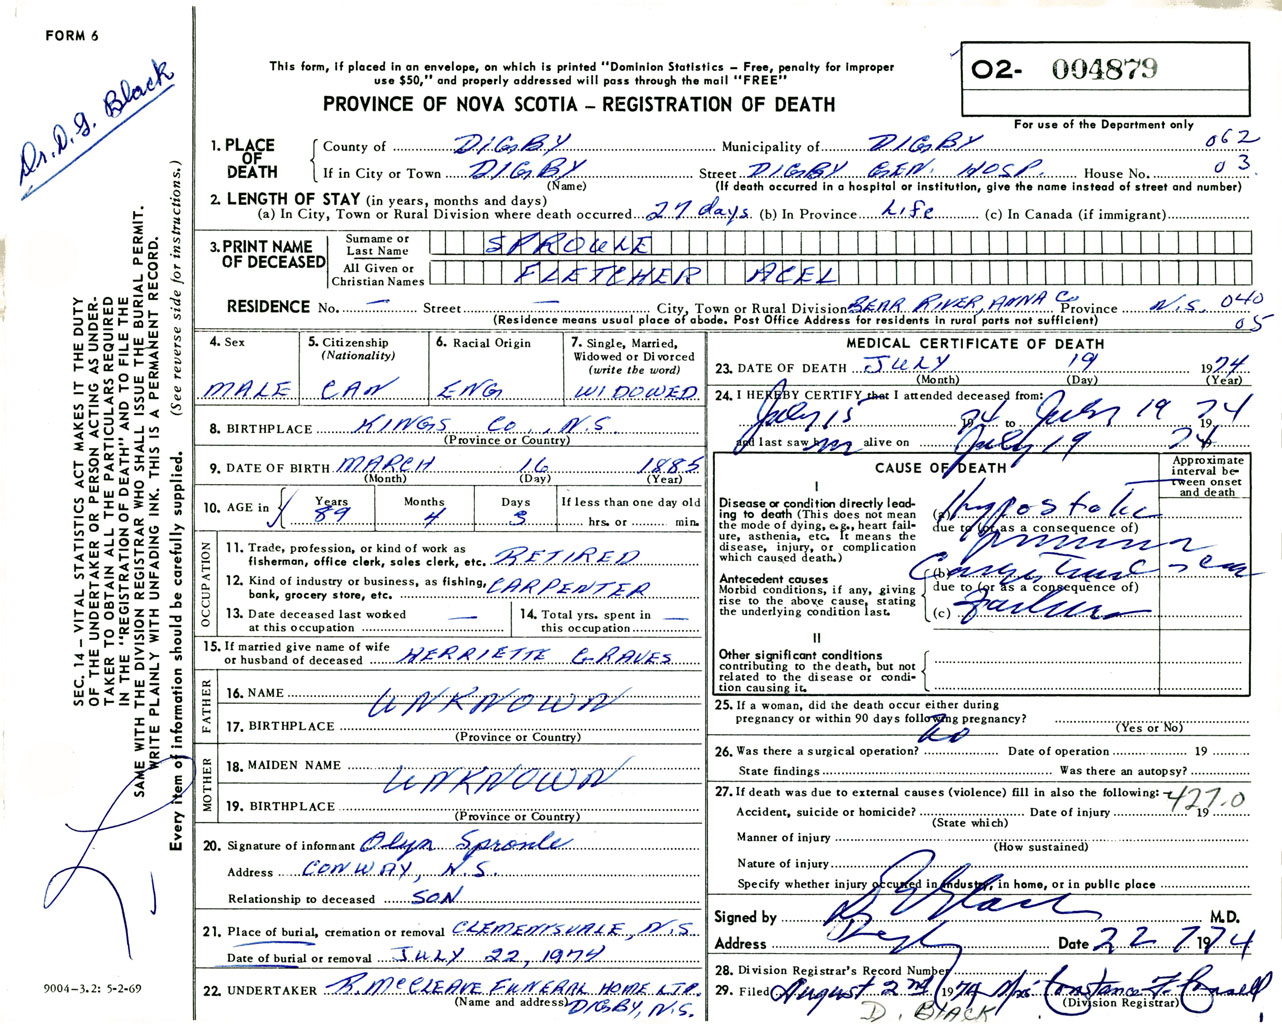 FORM 6
Dr. D. G. Black
This form, if placed in an envelope, on which is printed "Dominion Statistics – Free, penalty for improper
use $50," and properly addressed will pass through the mail "FREE"
PROVINCE OF NOVA SCOTIA – REGISTRATION OF DEATH
O2- 004879
For use of the Department only
062
03
1. PLACE OF DEATH
County of DIGBY Municipality of DIGBY
If in City or Town DIGBY Street DIGBY GEN. HOSP. House No.
(Name) (If death occurred in a hospital or institution, give the name instead of street and number)
2. LENGTH OF STAY (in years, months and days)
(a) In City, Town or Rural Division where death occurred 27 days (b) In Province Life (c) In Canada (if immigrant)
3. PRINT NAME OF DECEASED
Surname or Last Name SPROULE
All Given or Christian Names FLETCHER ACEL
RESIDENCE No. — Street — City, Town or Rural Division BEAR RIVER, ANNA Co Province N.S. 040
05
(Residence means usual place of abode. Post Office Address for residents in rural parts not sufficient)
4. Sex MALE
5. Citizenship (Nationality) CAN
6. Racial Origin ENG
7. Single, Married, Widowed or Divorced (write the word) WIDOWED
8. BIRTHPLACE KINGS Co., N.S.
(Province or Country)
9. DATE OF BIRTH MARCH 16 1885
(Month) (Day) (Year)
10. AGE in Years 89 Months 4 Days 3 If less than one day old hrs. or min.
OCCUPATION
11. Trade, profession, or kind of work as
fisherman, office clerk, sales clerk, etc. RETIRED
12. Kind of industry or business, as fishing,
bank, grocery store, etc. CARPENTER
13. Date deceased last worked
at this occupation —
14. Total yrs. spent in
this occupation —
15. If married give name of wife
or husband of deceased HERRIETTE GRAVES
FATHER
16. NAME UNKNOWN
17. BIRTHPLACE
(Province or Country)
MOTHER
18. MAIDEN NAME UNKNOWN
19. BIRTHPLACE
(Province or Country)
20. Signature of informant Sproule
Address CONWAY, N.S.
Relationship to deceased SON
21. Place of burial, cremation or removal CLEMENTSVALE, N.S.
Date of burial or removal JULY 22, 1974
22. UNDERTAKER R. McCLEAVE FUNERAL HOME LTD.
(Name and address) DIGBY, N.S.
MEDICAL CERTIFICATE OF DEATH
23. DATE OF DEATH JULY 19 1974
(Month) (Day) (Year)
24. I HEREBY CERTIFY that I attended deceased from:
July 15 1974 to July 19 1974
and last saw him alive on July 19 1974
CAUSE OF DEATH
Approximate interval between onset and death
I
Disease or condition directly leading to death (This does not mean the mode of dying, e.g., heart failure, asthenia, etc. It means the disease, injury, or complication which caused death.)
(a) Hypostatic
due to (or as a consequence of)
pneumonia
Antecedent causes
Morbid conditions, if any, giving rise to the above cause, stating the underlying condition last.
(b) Congestive
due to (or as a consequence of)
(c) Failure
II
Other significant conditions
contributing to the death, but not related to the disease or condition causing it.
25. If a woman, did the death occur either during
pregnancy or within 90 days following pregnancy?
(Yes or No)
26. Was there a surgical operation? no Date of operation 19
State findings Was there an autopsy?
27. If death was due to external causes (violence) fill in also the following: 427.0
Accident, suicide or homicide? Date of injury 19
(State which)
Manner of injury
(How sustained)
Nature of injury
Specify whether injury occurred in industry, in home, or in public place
Signed by D G Black M.D.
Address Digby Date 22 7 1974
28. Division Registrar's Record Number
29. Filed August 2nd 1974 Mrs Constance F.
(Division Registrar)
D. BLACK
SEC. 14 – VITAL STATISTICS ACT MAKES IT THE DUTY
OF THE UNDERTAKER OR PERSON ACTING AS UNDER-
TAKER TO OBTAIN ALL THE PARTICULARS REQUIRED
IN THE "REGISTRATION OF DEATH" AND TO FILE THE
SAME WITH THE DIVISION REGISTRAR WHO SHALL ISSUE THE BURIAL PERMIT.
WRITE PLAINLY WITH UNFADING INK. THIS IS A PERMANENT RECORD.
Every item of information should be carefully supplied. (See reverse side for instructions.)
9004-3.2: 5-2-69